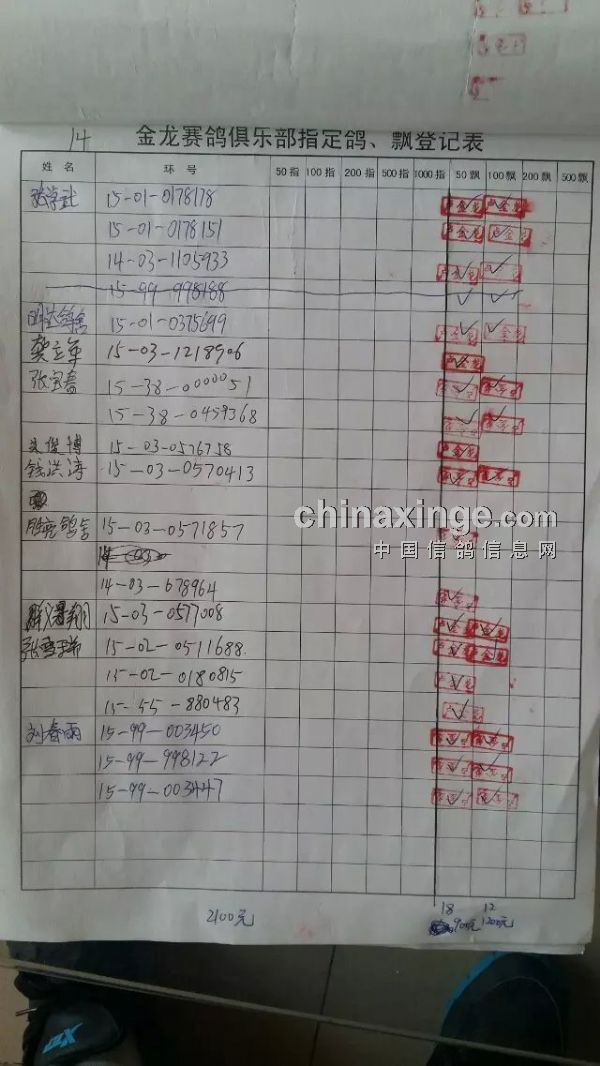 14 金龙赛鸽俱乐部指定鸽、飘登记表
姓名 环号 50指 100指 200指 500指 1000指 50飘 100飘 200飘 500飘
张学武 15-01-0178178
15-01-0178151
14-03-1105933
15-99-998188
鸽舍 15-01-0375699
龚立军 15-03-1218906
张宝春 15-38-0000051
15-38-0459368
俊博 15-03-0576758
钱洪涛 15-03-0570413
chinaxinge.com
鸽舍 15-03-0571857
中国信鸽信息网
14-03-678964
翔 15-03-0577008
张雪 15-02-0511688
15-02-0180815
15-55-880483
刘春雨 15-99-003450
15-99-998122
15-99-003447
2100元
18 12
900元 1200元